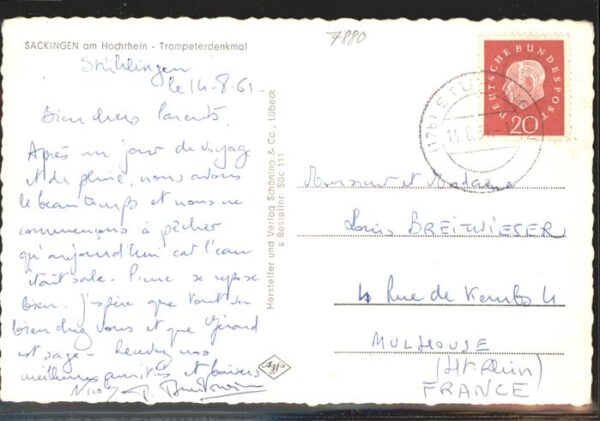 7880
SÄCKINGEN am Hochrhein - Trompeterdenkmal
Stühlingen
le 14-8-61-
Bien chers Parents,
Après un jour de voyage
et de pluie, nous avons
le beau temps et nous ne
commençons à pêcher
qu'aujourd'hui car l'eau
était sale. se repose
bien. J'espère que tout va
bien chez vous et que Gérard
est sage. Recevez nos
meilleures amitiés et baisers
Nicole
Hersteller und Verlag Schöning & Co., Lübeck
s Bestellnr. Säc 111
DEUTSCHE BUNDESPOST
20
(17b) STÜ
Monsieur et Madame
Louis BREITWIESER
4 Rue de Kembs 4
MULHOUSE
(Ht Rhin)
FRANCE